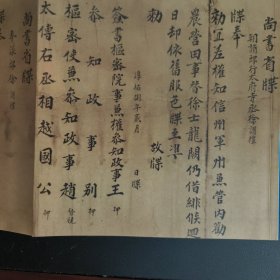 尚書省牒
朝請郎行太府寺丞徐謂禮
牒奉
勅宜差權知信州軍州兼管內勸
農營田事替徐士龍闕仍借緋候迴
日却依舊服色牒至準
勅　故牒
淳祐　年　月　日牒
簽書樞密院事兼權參知政事王　押
參知政事別　押
樞密使兼參知政事趙
太傅右丞相越國公　押
尚書省牒
奉議郎徐謂禮
牒奉